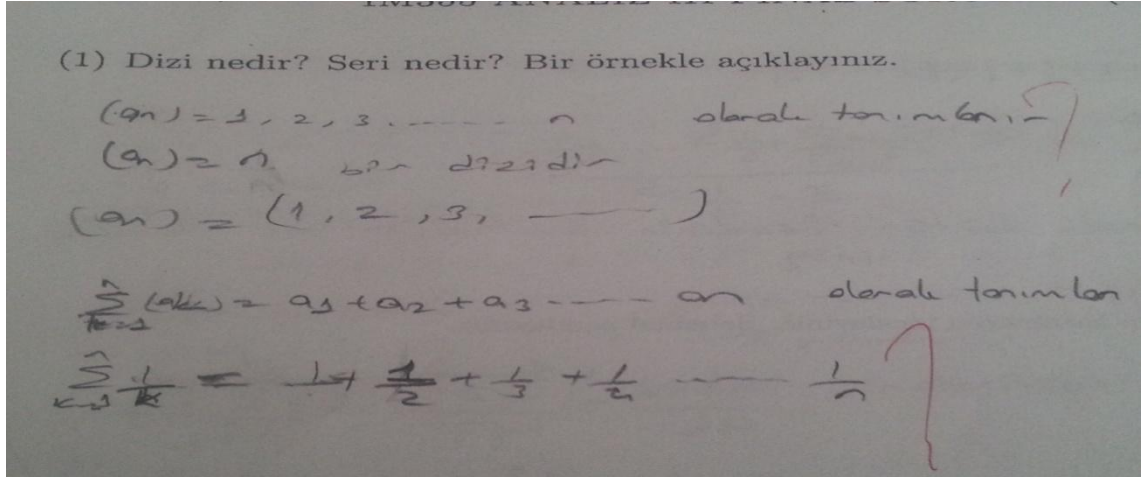 (1) Dizi nedir? Seri nedir? Bir örnekle açıklayınız.
(an) = 1, 2, 3 ........ n olarak tanımlanır
?
(an) = n bir dizidir
(an) = (1, 2, 3, ——— )
n Σ k=1 (ak) = a1 + a2 + a3 ----- an olarak tanımlan
n Σ k=1 1/k = 1 + 1/2 + 1/3 + 1/4 ----- 1/n